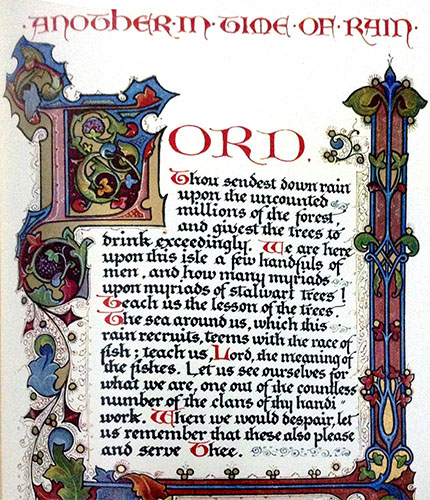 ·ANOTHER·IN·TIME·OF·RAIN·
LORD.
Thou sendest down rain
upon the uncounted
millions of the forest,
and givest the trees to
drink exceedingly. We are here
upon this isle a few handfuls of
men, and how many myriads
upon myriads of stalwart trees!
Teach us the lesson of the trees.
The sea around us, which this
rain recruits, teems with the race of
fish; teach us, Lord, the meaning of
the fishes. Let us see ourselves for
what we are, one out of the countless
number of the clans of thy handi
work. When we would despair, let
us remember that these also please
and serve Thee.